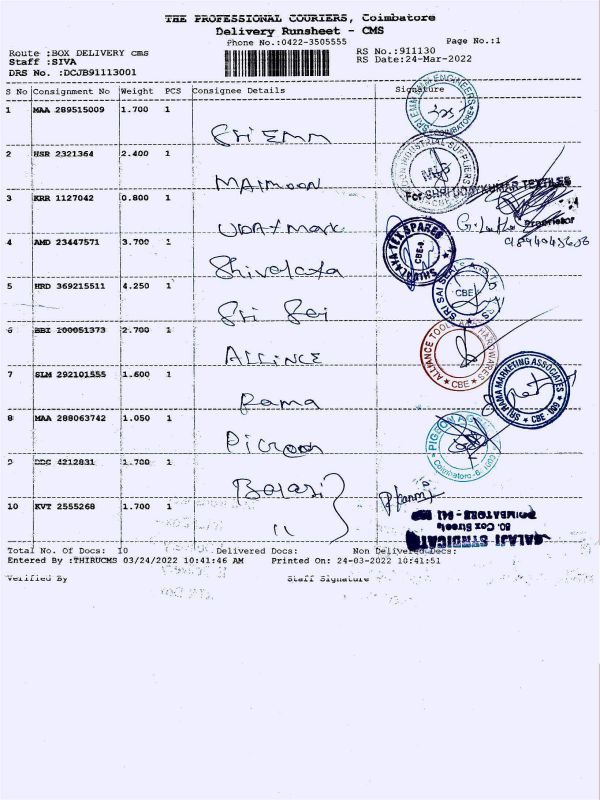 THE PROFESSIONAL COURIERS, Coimbatore
Delivery Runsheet - CMS
Phone No.:0422-3505555
Page No.:1
Route :BOX DELIVERY cms
RS No.:911130
Staff :SIVA
RS Date:24-Mar-2022
DRS No. :DCJB91113001
S No Consignment No Weight PCS Consignee Details Signature
1 MAA 289515009 1.700 1
Sri Emm
SRI EMM ENGINEERS COIMBATORE
2 HSR 2321364 2.400 1
MAIMOON
INDUSTRIAL SUPPLIERS CBE
3 KRR 1127042 0.800 1
UDAYMARK
For SHRI UDAYKUMAR TEXTILES
Proprietor
4 AMD 23447571 3.700 1
Shivalaxa
TEX SPARES CBE
5 HRD 369215511 4.250 1
Sri Sai
SRI SAI CBE
6 BBI 100051373 2.700 1
ALLINCE
ALLIANCE TOOLS HARDWARES CBE
7 SLM 292101555 1.600 1
Rama
SRI RAMA MARKETING ASSOCIATES CBE
8 MAA 288063742 1.050 1
Pigeon
PIGEON Coimbatore
9 DDC 4212831 1.700 1
Balaji
10 KVT 2555268 1.700 1
"
BALAJI SYNDICATE
80, Cox Street,
COIMBATORE - 641
Total No. Of Docs: 10 Delivered Docs: Non Delivered Docs:
Entered By :THIRUCMS 03/24/2022 10:41:46 AM Printed On: 24-03-2022 10:41:51
Verified By Staff Signature